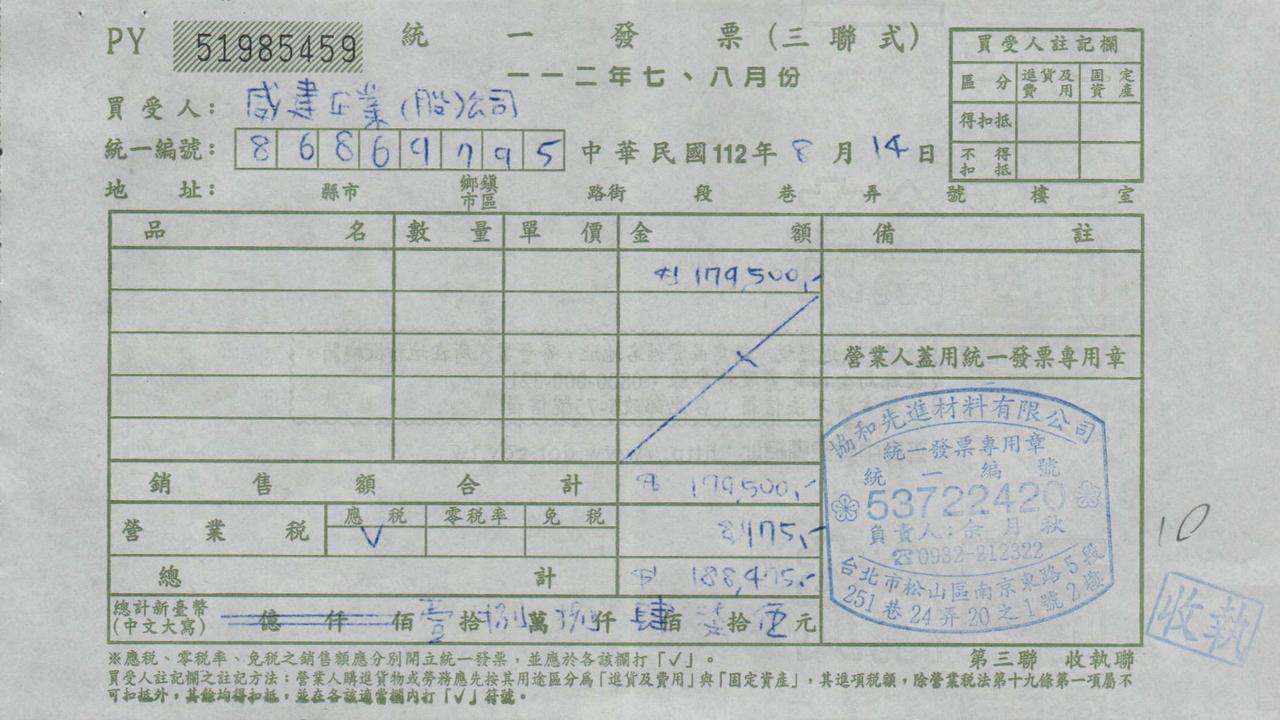 PY 51985459 統一發票(三聯式)
一一二年七、八月份
買受人註記欄
區分 進貨及費用 固定資產
得扣抵
不得扣抵
買受人: 威建企業(股)公司
統一編號: 86869795 中華民國112年8月14日
地址: 縣市 鄉鎮市區 路街 段 巷 弄 號 樓 室
品名 數量 單價 金額 備註
$179,500.-
營業人蓋用統一發票專用章
銷售額合計 $179,500.-
營業稅 應稅 V 零稅率 免稅 8,975.-
總計 $188,475.-
總計新臺幣(中文大寫) 億 仟 佰 壹 拾 捌 萬 捌 仟 肆 佰 柒 拾 伍 元
協和先進材料有限公司
統一發票專用章
統一編號
53722420
負責人:余月秋
☎0932-212322
台北市松山區南京東路5段
251巷24弄20之1號2樓
10
收執
第三聯 收執聯
※應稅、零稅率、免稅之銷售額應分別開立統一發票,並應於各該欄打「✓」。
買受人註記欄之註記方法:營業人購進貨物或勞務應先按其用途區分為「進貨及費用」與「固定資產」,其進項稅額,除營業稅法第十九條第一項屬不
可扣抵外,其餘均得扣抵,並在各該適當欄內打「✓」符號。